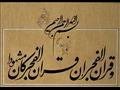 بسم الله الرحمن الرحیم
وقرآن الفجر إن قرآن الفجر کان مشهودا